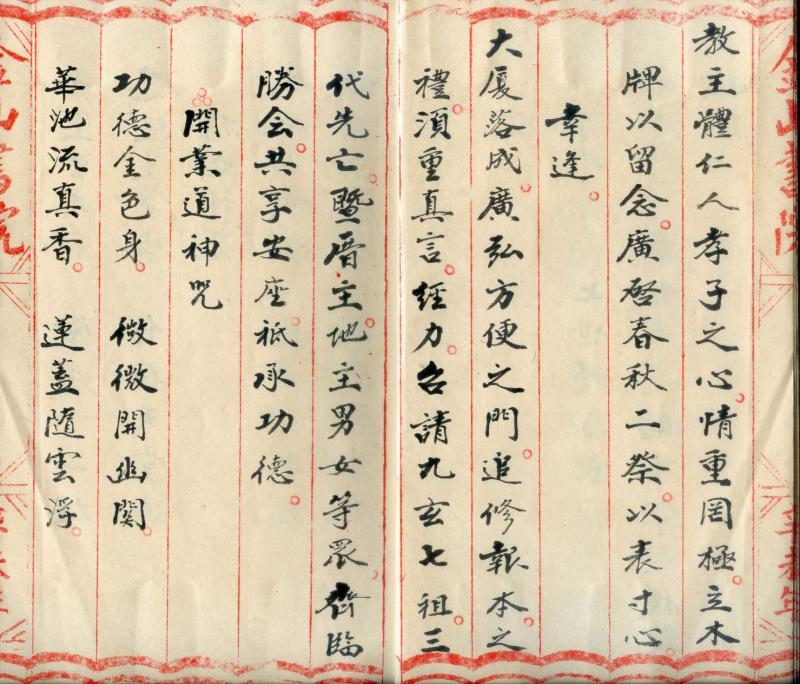 教主體仁人孝子之心。情重罔極。立木
牌以留念。廣啓春秋二祭。以表寸心。
幸逢。
大厦落成。廣弘方便之門。追修報本之
禮。須重真言。經力。召請九玄七祖。三
代先亡。暨厝主。地主男女等眾。齊臨
勝会。共享安座。祗承功德。
開業道神咒
功德金色身。 微微開幽関。
華池流真香。 蓮蓋隨雲浮。